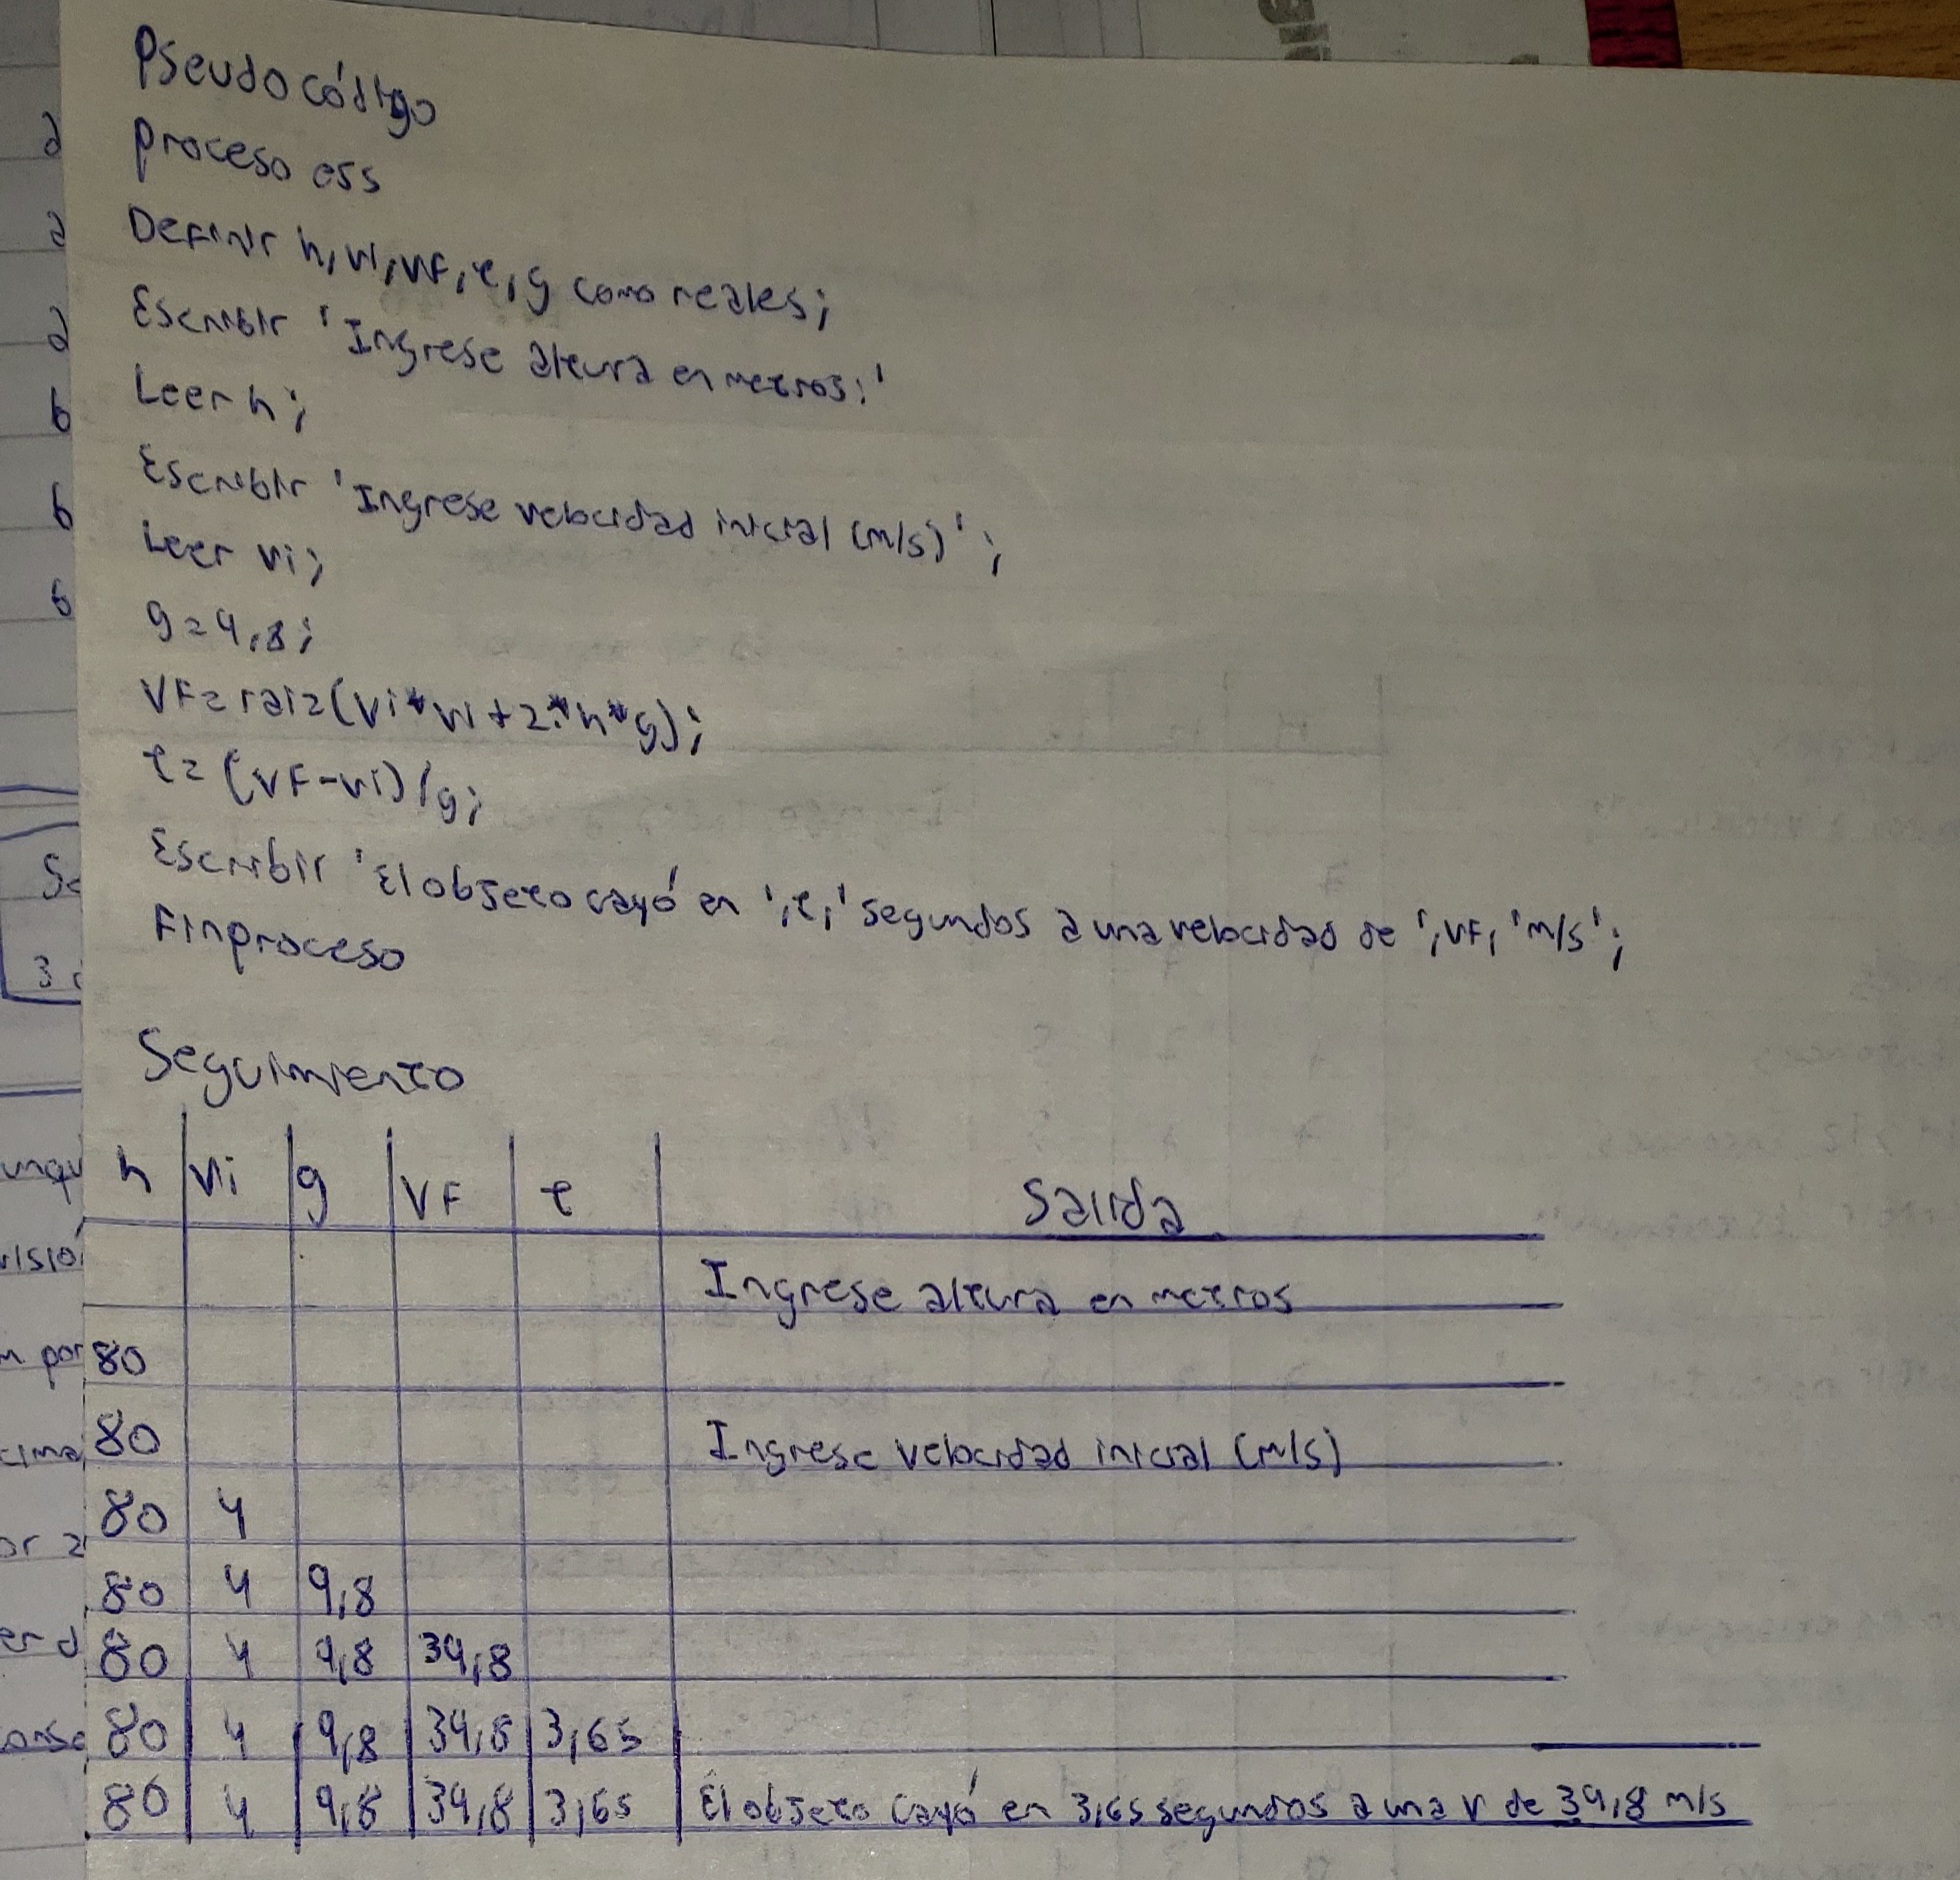 Pseudocódigo
Proceso ess
Definir h, vi, VF, t, g como reales;
Escribir 'Ingrese altura en metros:'
Leer h;
Escribir 'Ingrese velocidad inicial (m/s)';
Leer vi;
g=9,8;
VF=raiz(Vi*vi+2*h*g);
t=(VF-vi)/g;
Escribir 'El objeto cayó en ',t,' segundos a una velocidad de ',VF, 'm/s';
Finproceso
Seguimiento
h Vi g VF t Salida
Ingrese altura en metros
80
80 Ingrese velocidad inicial (m/s)
80 4
80 4 9,8
80 4 9,8 39,8
80 4 9,8 39,8 3,65
80 4 9,8 39,8 3,65 El objeto cayó en 3,65 segundos a una v de 39,8 m/s